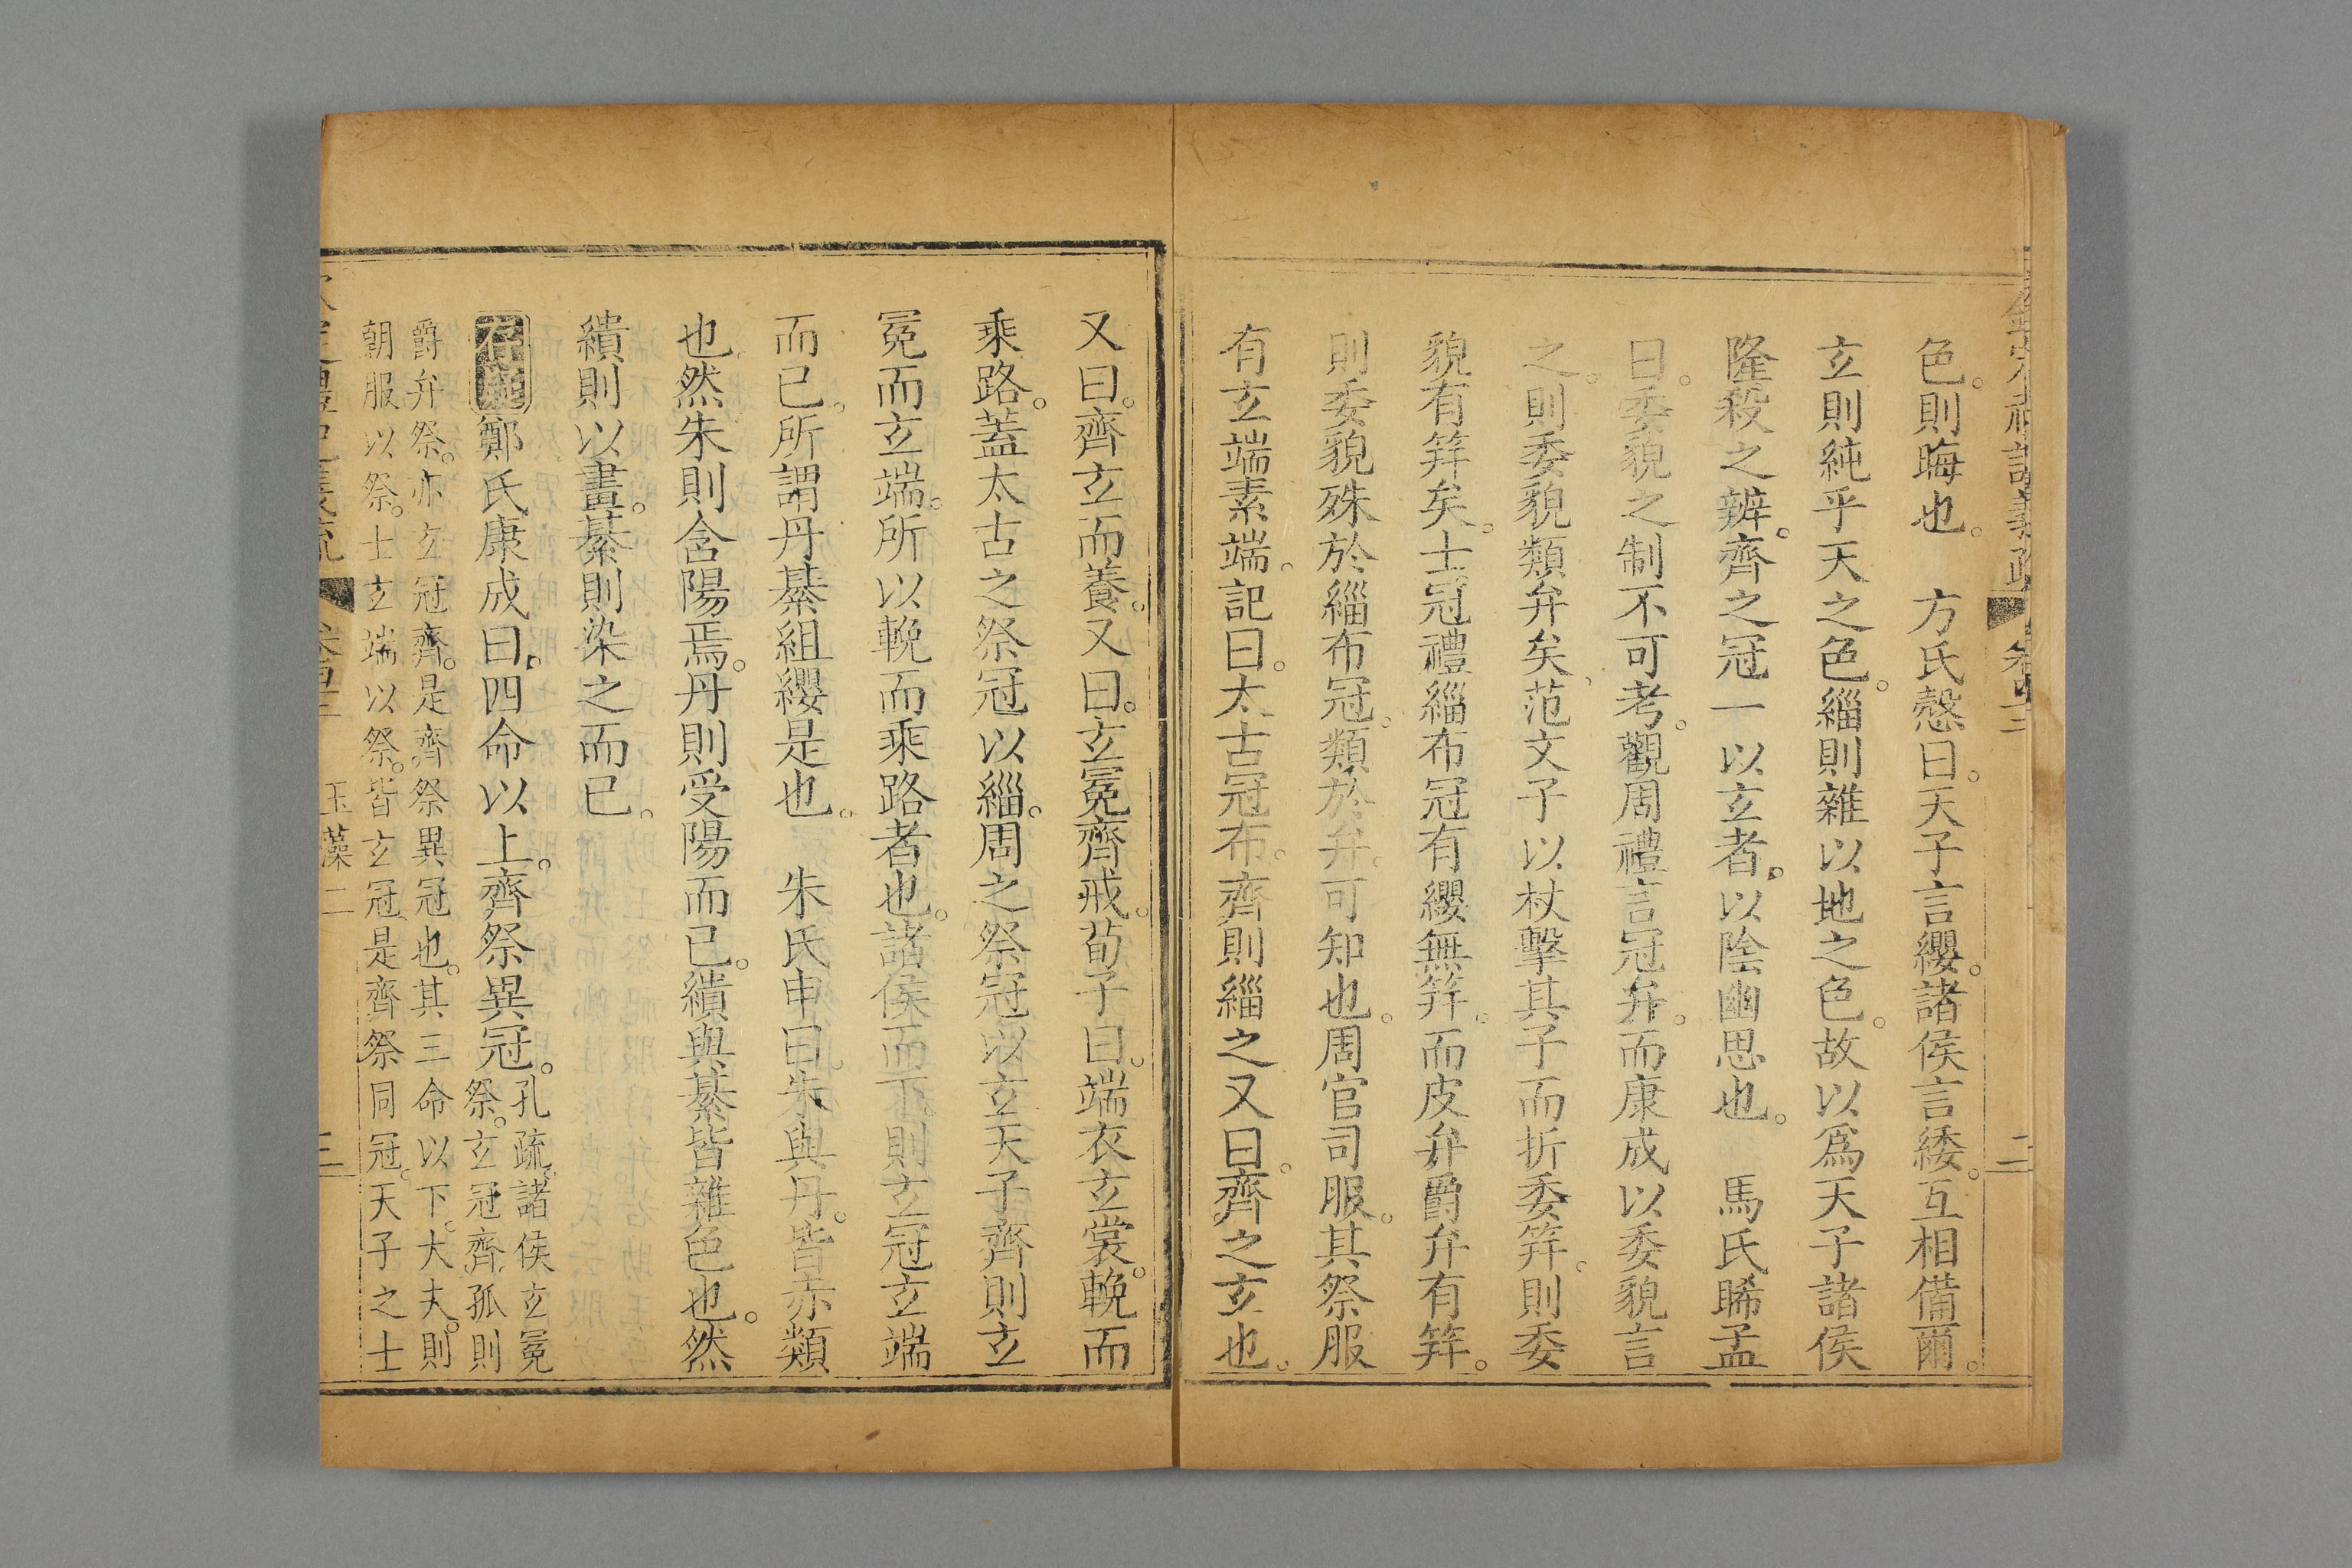 色。則晦也。　方氏慤曰。天子言纓。諸侯言緌。互相備爾。
玄則純乎天之色。緇則雜以地之色。故以爲天子諸侯
隆殺之辨。齊之冠一以玄者。以陰幽思也。　馬氏睎孟
曰。委貌之制不可考。觀周禮言冠弁。而康成以委貌言
之。則委貌類弁矣。范文子以杖擊其子而折委笄。則委
貌有笄矣。士冠禮緇布冠有纓無笄。而皮弁爵弁有笄。
則委貌殊於緇布冠。類於弁。可知也。周官司服。其祭服
有玄端素端。記曰。太古冠布。齊則緇之又曰。齊之玄也。
又曰。齊玄而養。又曰。玄冕齊戒。荀子曰。端衣玄裳。輓而
乘路。蓋太古之祭冠以緇。周之祭冠以玄天子齊則玄
冕而玄端。所以輓而乘路者也。諸侯而下。則玄冠玄端
而已。所謂丹綦組纓是也。　朱氏申曰。朱與丹。皆赤類
也然朱則含陽焉。丹則受陽而已。繢與綦皆雜色也。然
繢則以畫。綦則染之而已。
鄭氏康成曰。四命以上。齊祭異冠。孔疏。諸侯玄冕
祭。玄冠齊。孤則
爵弁祭。亦玄冠齊。是齊祭異冠也。其三命以下。大夫。則
朝服以祭。士玄端以祭。皆玄冠。是齊祭同冠。天子之士
玉藻二
三